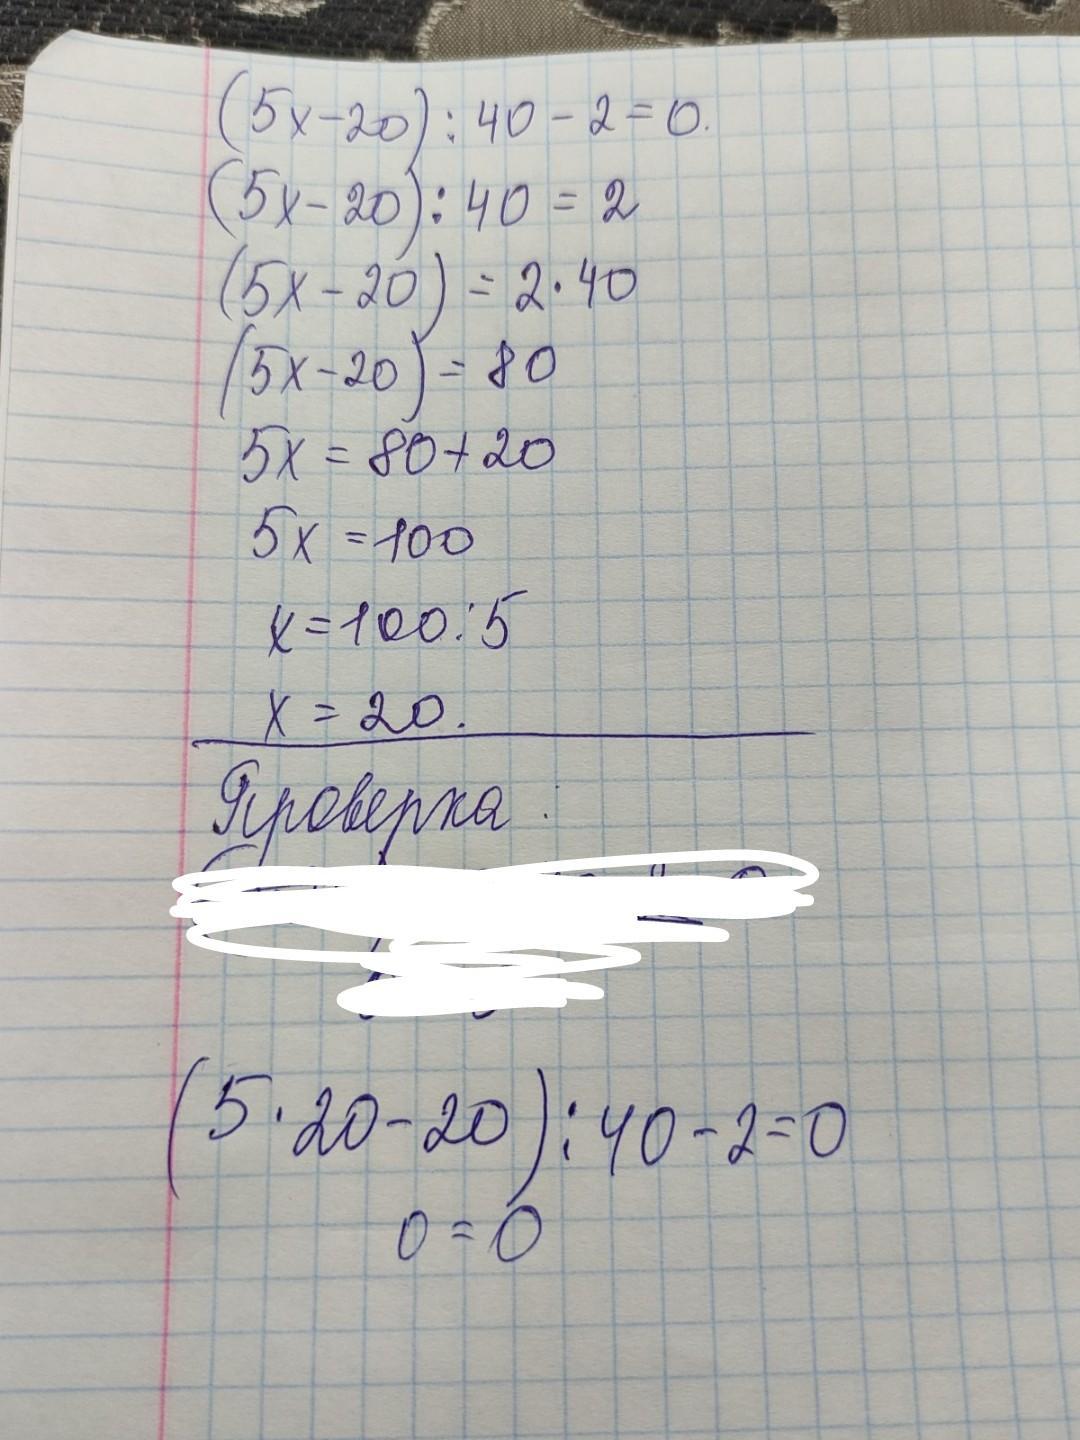 (5x-20):40-2=0.
(5x-20):40=2
(5x-20)=2·40
(5x-20)=80
5x=80+20
5x=100
x=100:5
x=20.
Проверка:
(5·20-20):40-2=0
0=0